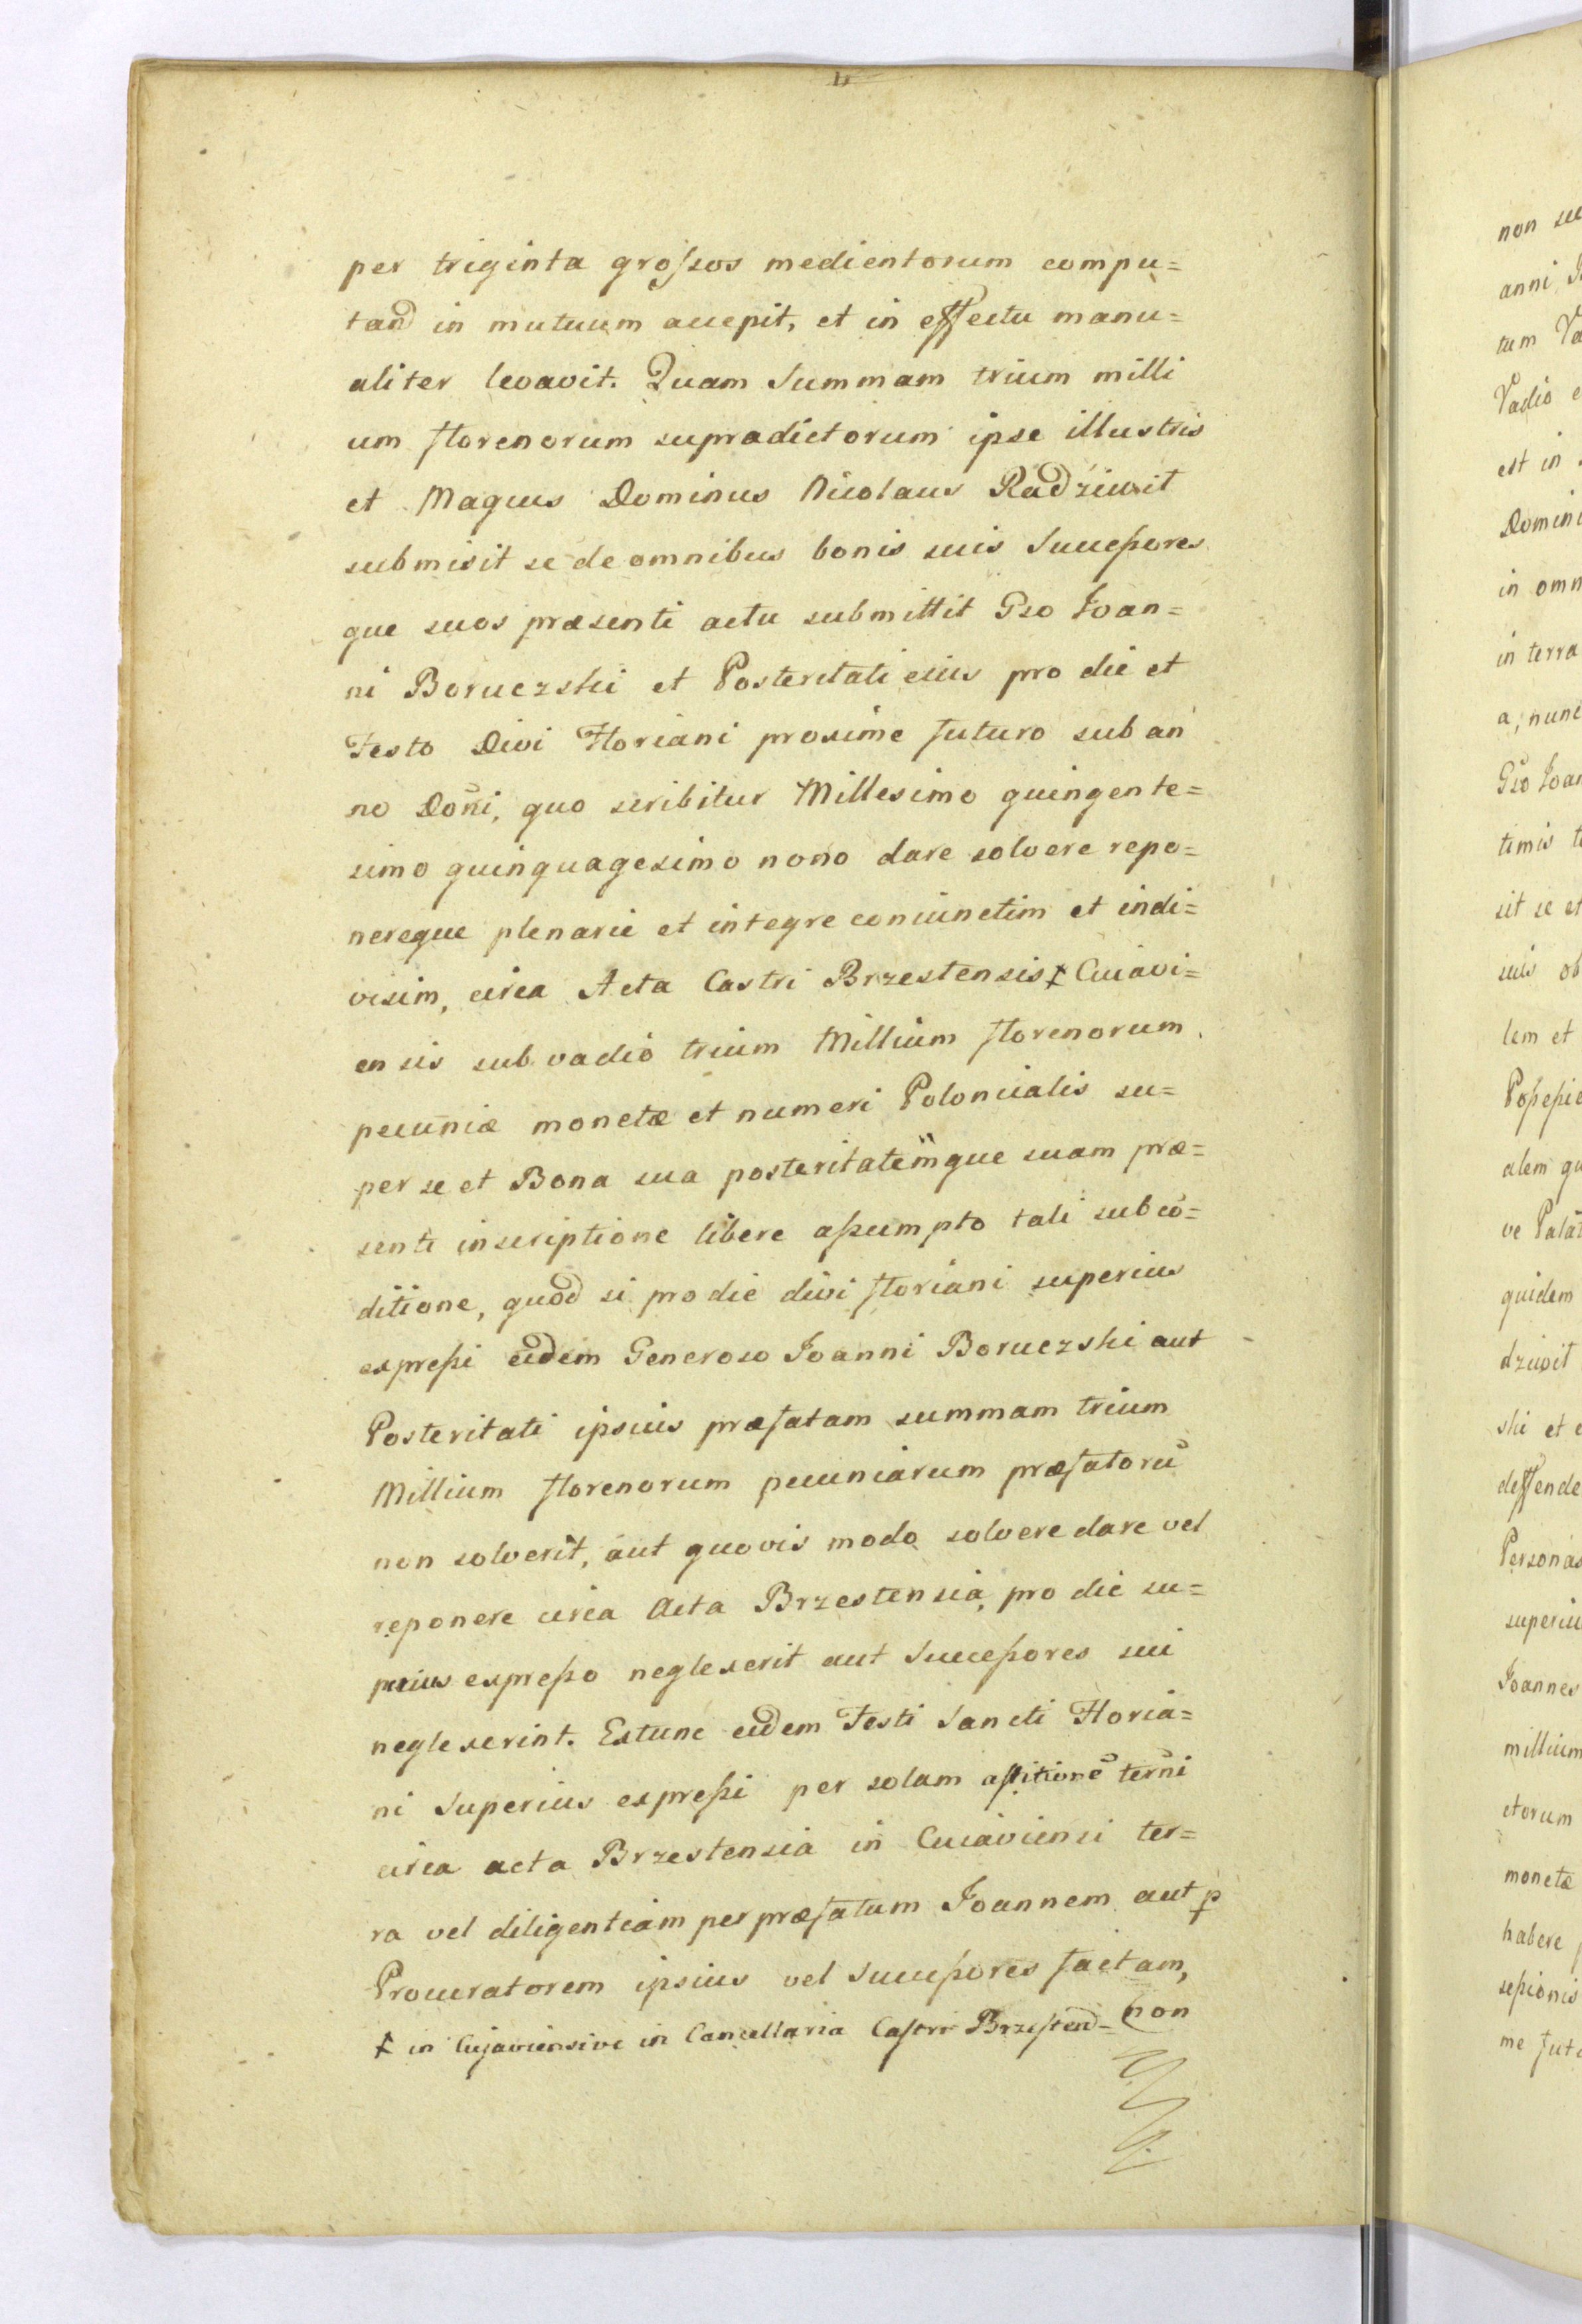 per triginta grossos medientorum compu=
tand in mutuum accepit, et in effectu manu=
aliter levavit. Quam Summam trium milli
um florenorum supradictorum ipse illustris
et Magcus Dominus Nicolaus Radziwit
submisit se de omnibus bonis suis Successores
que suos præsenti actu submittit Gso Joan=
ni Boruczski et Posteritati eius pro die et
Festo Divi Floriani proxime futuro sub an
no Doni, quo scribitur Millesimo quingente=
simo quinquagesimo nono dare solvere repo=
nereque plenarie et integre coniunctim et indi=
visim, circa Acta Castri Brzestensis ☨ Cuiavi=
ensis sub vadio trium Millium florenorum
pecuniæ monetæ et numeri Polonicalis su=
per se et Bona sua posteritatemque suam præ=
senti inscriptione libere assumpto tali sub co=
ditione, quod si pro die divi floriani superius
expressi eidem Generoso Joanni Boruczski aut
Posteritati ipsius præfatam summam trium
Millium florenorum pecuniarum præfatorū
non solverit, aut quovis modo solvere dare vel
reponere circa Acta Brzestensia, pro die su=
perius expresso neglexerit aut Successores sui
neglexerint. Extunc eidem Festi Sancti Floria=
ni Superius expressi per solam astitionē terni
circa acta Brzestensia in Cuiaviensi ter=
ra vel diligentiam per præfatum Joannem aut p
Procuratorem ipsius vel Successores factam,
☨ in Cujaviensive in Cancellaria Castri Brzestend= non
non
anni
tum
Vadio
est in
Domini
in omn
in terra
a, nunc
Gso Joan
timis
sit se et
suis ob
lem et
Possessio
alem qu
ve Palat
quidem
dziwit
ski et
deffende
Personas
superiu
Joannes
millium
ctorum
monetæ
habere
sessionis
me futu